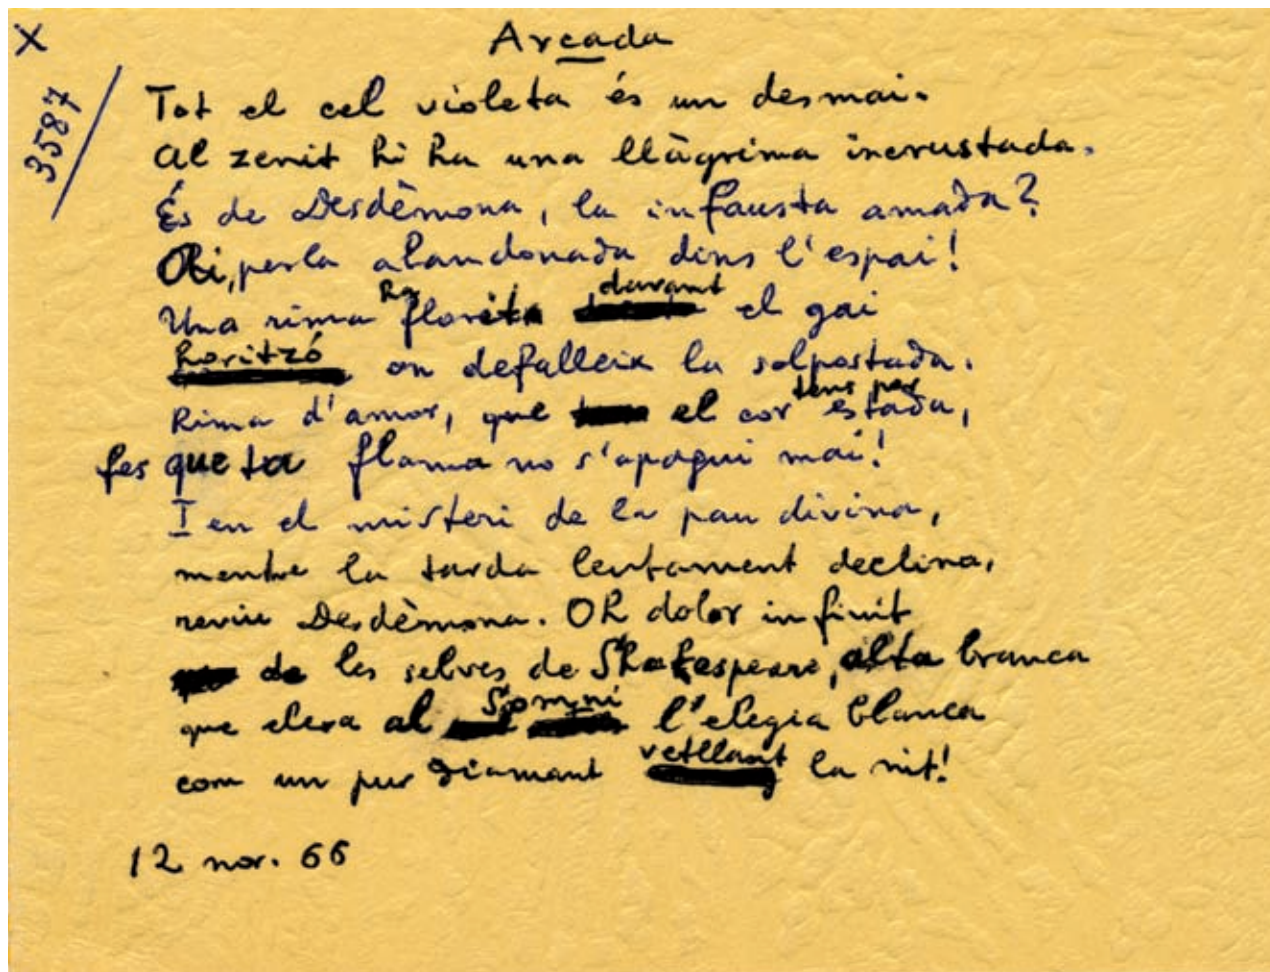 X
Arcada
3587
Tot el cel violeta és un desmai.
Al zenit hi ha una llàgrima incrustada.
És de Desdèmona, la infausta amada?
Oh, perla abandonada dins l'espai!
Una rima ha florit davant el gai
horitzó on defalleix la solpostada.
Rima d'amor, que el cor tens per estada,
fes que ta flama no s'apagui mai!
I en el misteri de la pau divina,
mentre la tarda lentament declina,
reviu Desdèmona. Oh dolor infinit
de les selves de Shakespeare, alta branca
que eleva al somni l'elegia blanca
com un pur diamant vetllant la nit!
12 nov. 66